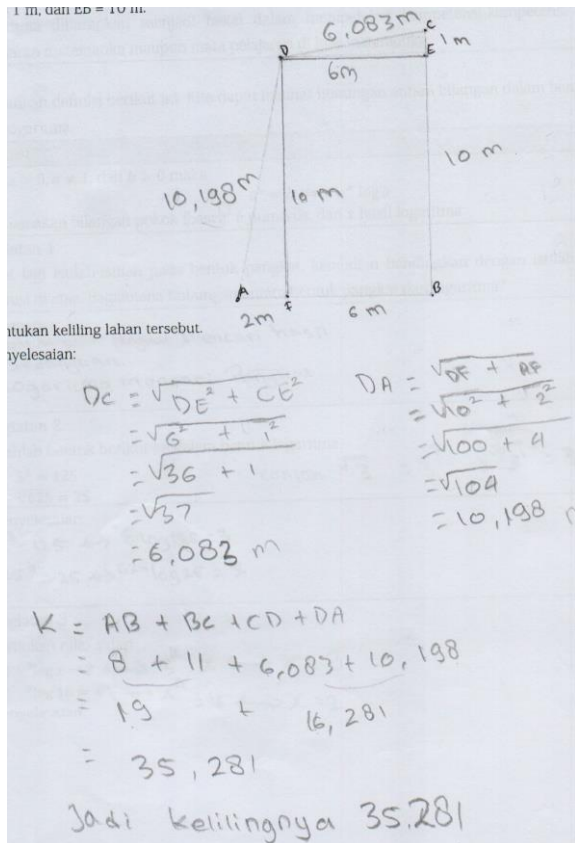 1 m, dan EB = 10 m.
6,083 m
D
C
E
1 m
6m
10,198 m
10 m
10 m
A
F
B
2m
6 m
ntukan keliling lahan tersebut.
nyelesaian:
DC = √DE² + CE²
= √6² + 1²
= √36 + 1
= √37
= 6.083 m
DA = √DF + AF
= √10² + 2²
= √100 + 4
= √104
= 10,198
K = AB + BC + CD + DA
= 8 + 11 + 6,083 + 10,198
= 19 + 16,281
= 35,281
Jadi kelilingnya 35.281